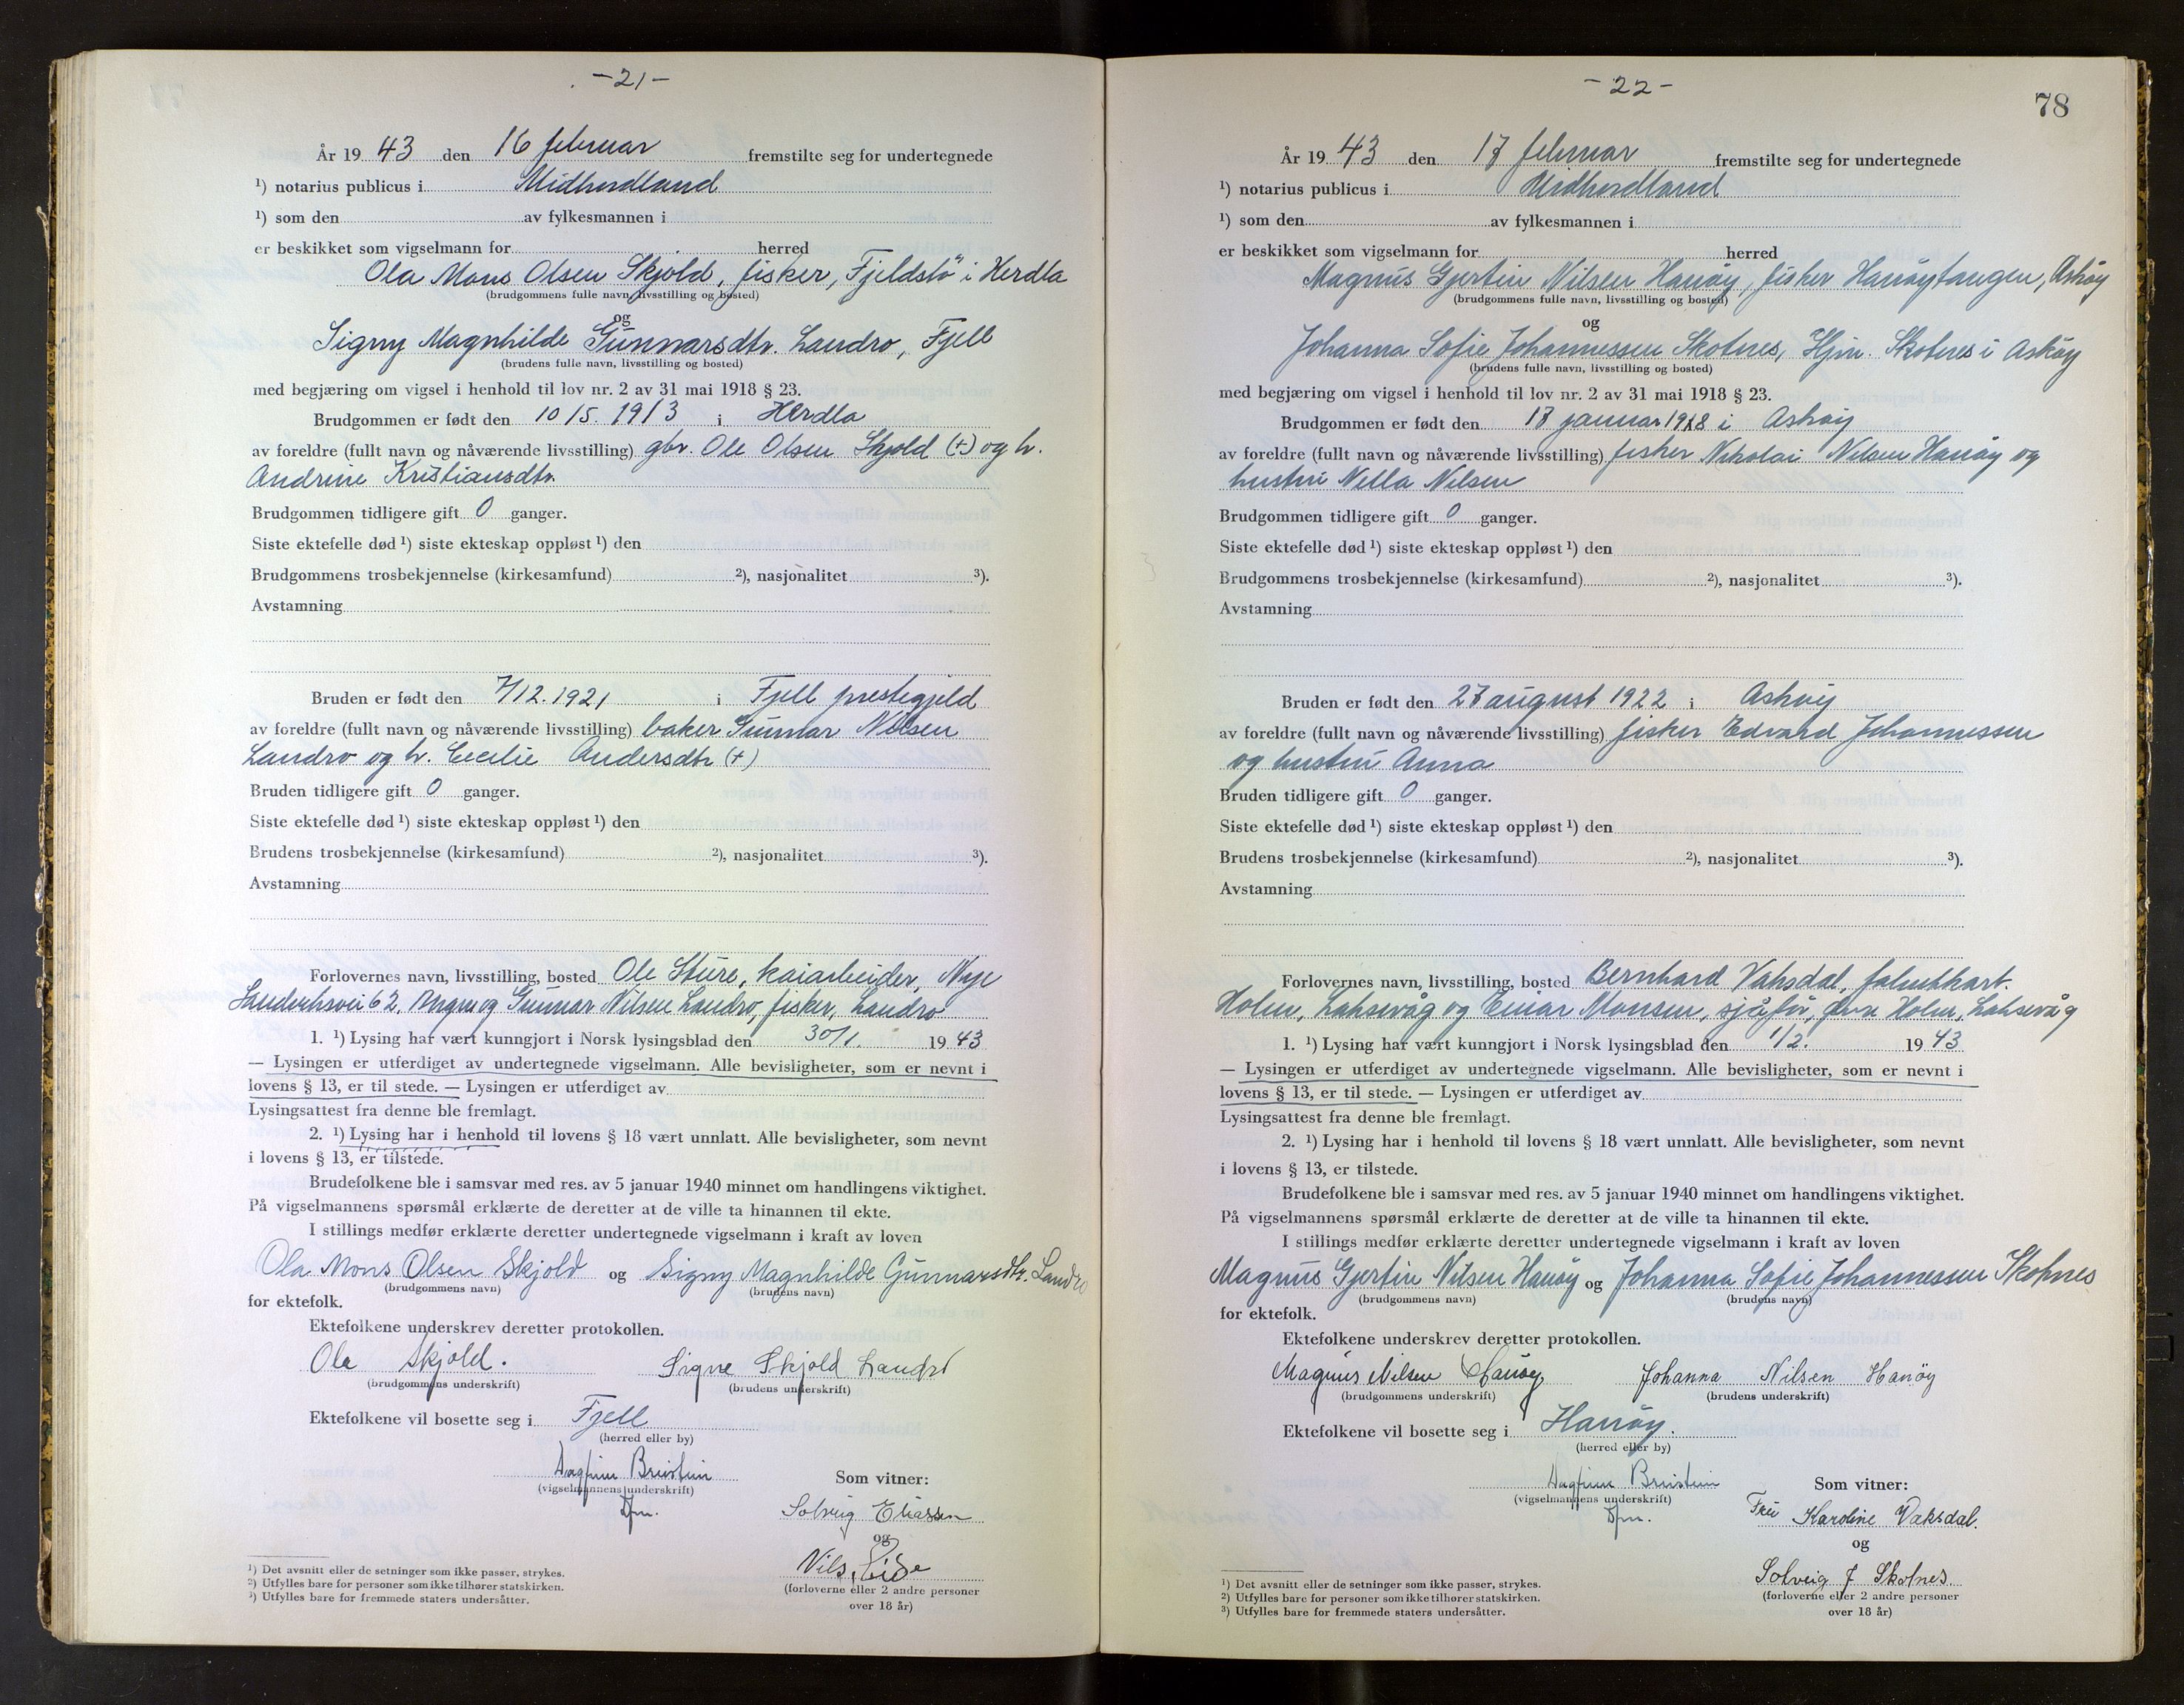 -21-
År 19 43 den 16 februar fremstilte seg for undertegnede
¹) notarius publicus i Midhordland
¹) som den av fylkesmannen i
er beskikket som vigselmann for herred
Ola Mons Olsen Skjold, fisker, Fjeldstö i Herdla
(brudgommens fulle navn, livsstilling og bosted)
og
Signy Magnhilde Gunnarsdtr. Landro, Fjell
(brudens fulle navn, livsstilling og bosted)
med begjæring om vigsel i henhold til lov nr. 2 av 31 mai 1918 § 23.
Brudgommen er født den 10/5. 1913 i Herdla
av foreldre (fullt navn og nåværende livsstilling) gbr. Ole Olsen Skjold (+) og h.
Andrine Kristiansdtr.
Brudgommen tidligere gift 0 ganger.
Siste ektefelle død ¹) siste ekteskap oppløst ¹) den
Brudgommens trosbekjennelse (kirkesamfund) ²), nasjonalitet ³).
Avstamning
Bruden er født den 7/12. 1921 i Fjell prestegjeld
av foreldre (fullt navn og nåværende livsstilling) baker Gunnar Nilsen
Landro og h. Cecilie Andersdtr (+)
Bruden tidligere gift 0 ganger.
Siste ektefelle død ¹) siste ekteskap oppløst ¹) den
Brudens trosbekjennelse (kirkesamfund) ²), nasjonalitet ³).
Avstamning
Forlovernes navn, livsstilling, bosted Ole Sture, kaiarbeider, Nye
62, og Gunnar Nilsen Landro, fisker, Landro
1. ¹) Lysing har vært kunngjort i Norsk lysingsblad den 30/1. 19 43
— Lysingen er utferdiget av undertegnede vigselmann. Alle bevisligheter, som er nevnt i
lovens § 13, er til stede. — Lysingen er utferdiget av
Lysingsattest fra denne ble fremlagt.
2. ¹) Lysing har i henhold til lovens § 18 vært unnlatt. Alle bevisligheter, som nevnt
i lovens § 13, er tilstede.
Brudefolkene ble i samsvar med res. av 5 januar 1940 minnet om handlingens viktighet.
På vigselmannens spørsmål erklærte de deretter at de ville ta hinannen til ekte.
I stillings medfør erklærte deretter undertegnede vigselmann i kraft av loven
Ola Mons Olsen Skjold og Signy Magnhilde Gunnarsdtr. Landro
(brudgommens navn) (brudens navn)
for ektefolk.
Ektefolkene underskrev deretter protokollen.
Ola Skjold. Signe Skjold Landro
(brudgommens underskrift) (brudens underskrift)
Ektefolkene vil bosette seg i Fjell
(herred eller by)
Dagfinn Breistein
(vigselmannens underskrift)
Dfm.
Som vitner:
Solveig Eliassen
og
Nils Eide
(forloverne eller 2 andre personer
over 18 år)
¹) Det avsnitt eller de setninger som ikke passer, strykes.
²) Utfylles bare for personer som ikke tilhører statskirken.
³) Utfylles bare for fremmede staters undersåtter.
-22-
78
År 19 43 den 17 februar fremstilte seg for undertegnede
¹) notarius publicus i Midhordland
¹) som den av fylkesmannen i
er beskikket som vigselmann for herred
Magnus Gjertin Nilsen Hanøy, fisker Hanøytangen, Askøy
(brudgommens fulle navn, livsstilling og bosted)
og
Johanna Sofie Johannessen Skotnes, Hjm. Skotnes i Askøy
(brudens fulle navn, livsstilling og bosted)
med begjæring om vigsel i henhold til lov nr. 2 av 31 mai 1918 § 23.
Brudgommen er født den 18 januar 1918 i Askøy
av foreldre (fullt navn og nåværende livsstilling) fisker Nikolai Nilsen Hanøy og
hustru Nella Nilsen
Brudgommen tidligere gift 0 ganger.
Siste ektefelle død ¹) siste ekteskap oppløst ¹) den
Brudgommens trosbekjennelse (kirkesamfund) ²), nasjonalitet ³).
Avstamning
Bruden er født den 27 august 1922 i Askøy
av foreldre (fullt navn og nåværende livsstilling) fisker Edvard Johannessen
og hustru Anna
Bruden tidligere gift 0 ganger.
Siste ektefelle død ¹) siste ekteskap oppløst ¹) den
Brudens trosbekjennelse (kirkesamfund) ²), nasjonalitet ³).
Avstamning
Forlovernes navn, livsstilling, bosted Bernhard Vaksdal,
Holen, Laksevåg og Einar Monsen, sjåfør, Øvre Holen, Laksevåg
1. ¹) Lysing har vært kunngjort i Norsk lysingsblad den 1/2. 19 43
— Lysingen er utferdiget av undertegnede vigselmann. Alle bevisligheter, som er nevnt i
lovens § 13, er til stede. — Lysingen er utferdiget av
Lysingsattest fra denne ble fremlagt.
2. ¹) Lysing har i henhold til lovens § 18 vært unnlatt. Alle bevisligheter, som nevnt
i lovens § 13, er tilstede.
Brudefolkene ble i samsvar med res. av 5 januar 1940 minnet om handlingens viktighet.
På vigselmannens spørsmål erklærte de deretter at de ville ta hinannen til ekte.
I stillings medfør erklærte deretter undertegnede vigselmann i kraft av loven
Magnus Gjertin Nilsen Hanøy og Johanna Sofie Johannessen Skotnes
(brudgommens navn) (brudens navn)
for ektefolk.
Ektefolkene underskrev deretter protokollen.
Magnus Nilsen Hanøy Johanna Nilsen Hanøy
(brudgommens underskrift) (brudens underskrift)
Ektefolkene vil bosette seg i Hanøy.
(herred eller by)
Dagfinn Breistein
(vigselmannens underskrift)
Dfm.
Som vitner:
Fru Karoline Vaksdal.
og
Solveig J Skotnes.
(forloverne eller 2 andre personer
over 18 år)
¹) Det avsnitt eller de setninger som ikke passer, strykes.
²) Utfylles bare for personer som ikke tilhører statskirken.
³) Utfylles bare for fremmede staters undersåtter.